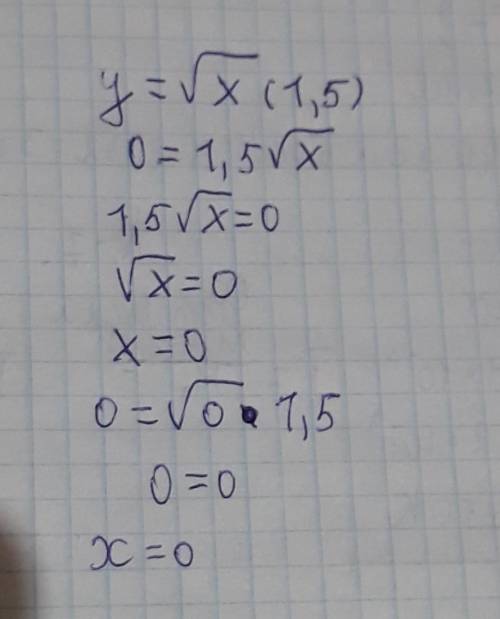 y = √x (1,5)
0 = 1,5√x
1,5√x = 0
√x = 0
x = 0
0 = √0 • 1,5
0 = 0
x = 0